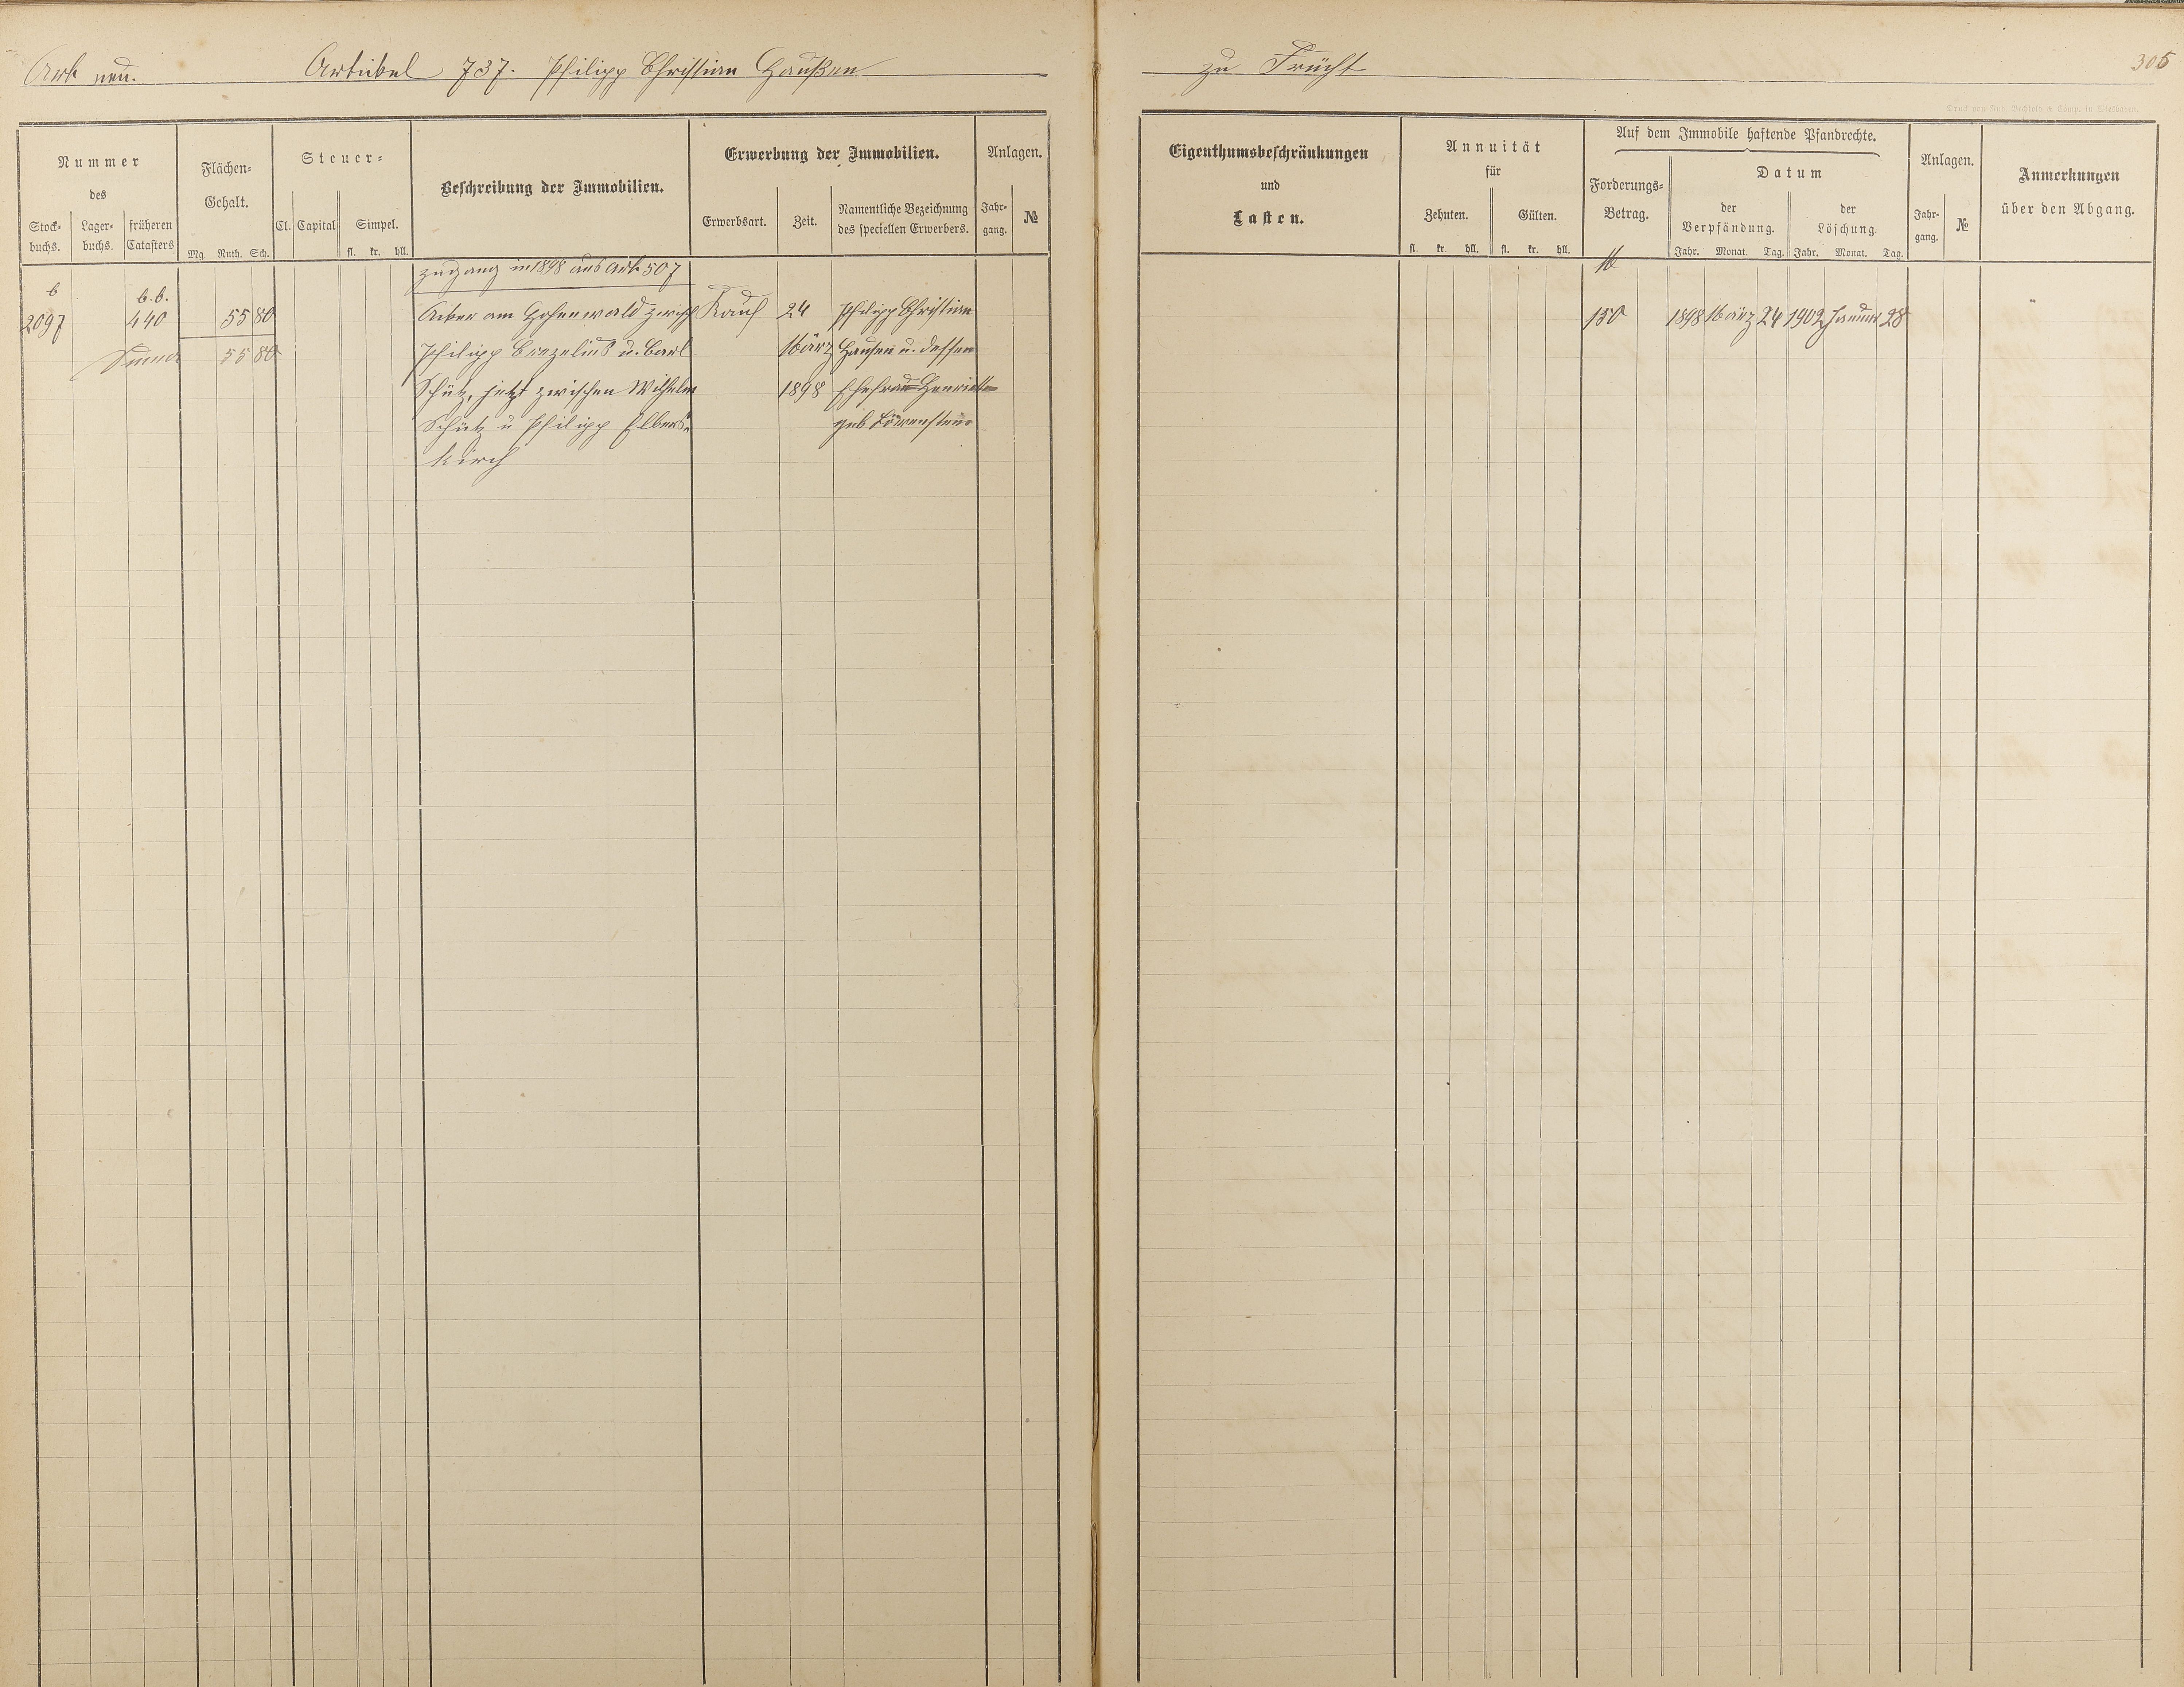 Art neu. Artikel 737. Philipp Christian Haußen zu Frücht 306
Druck von Rud. Bechtold & Comp. in Wiesbaden.
Nummer
des
Stock-
buchs.
Lager-
buchs.
früheren
Catasters
Flächen-
Gehalt.
Mg. Ruth. Sch.
Steuer-
Cl. Capital Simpel.
fl. kr. hll.
Beschreibung der Immobilien.
Erwerbung der Immobilien.
Erwerbsart.
Zeit.
Namentliche Bezeichnung
des speciellen Erwerbers.
Anlagen.
Jahr-
gang.
№
Eigenthumsbeschränkungen
und
Lasten.
Annuität
für
Zehnten. Gülten.
fl. kr. hll. fl. kr. hll.
Auf dem Immobile haftende Pfandrechte.
Forderungs-
Betrag.
Datum
der
Verpfändung.
der
Löschung.
Jahr. Monat. Tag. Jahr. Monat. Tag.
Anlagen.
Jahr-
gang.
№
Anmerkungen
über den Abgang.
Zugang in 1898 aus Art. 507
M
b b.b.
2097 440 55 80 Acker am Hohenwald zwisch Kauf 24 Philipp Christian 150 1898 März 24 1902 Januar 28
Summa 55 80 Philipp Crezelius u. Carl März Hausen u. dessen
Schütz, jetzt zwischen Wilhelm 1898 Ehefrau Henriette
Schütz u Philipp Elbers- geb Löwenstein
kirch